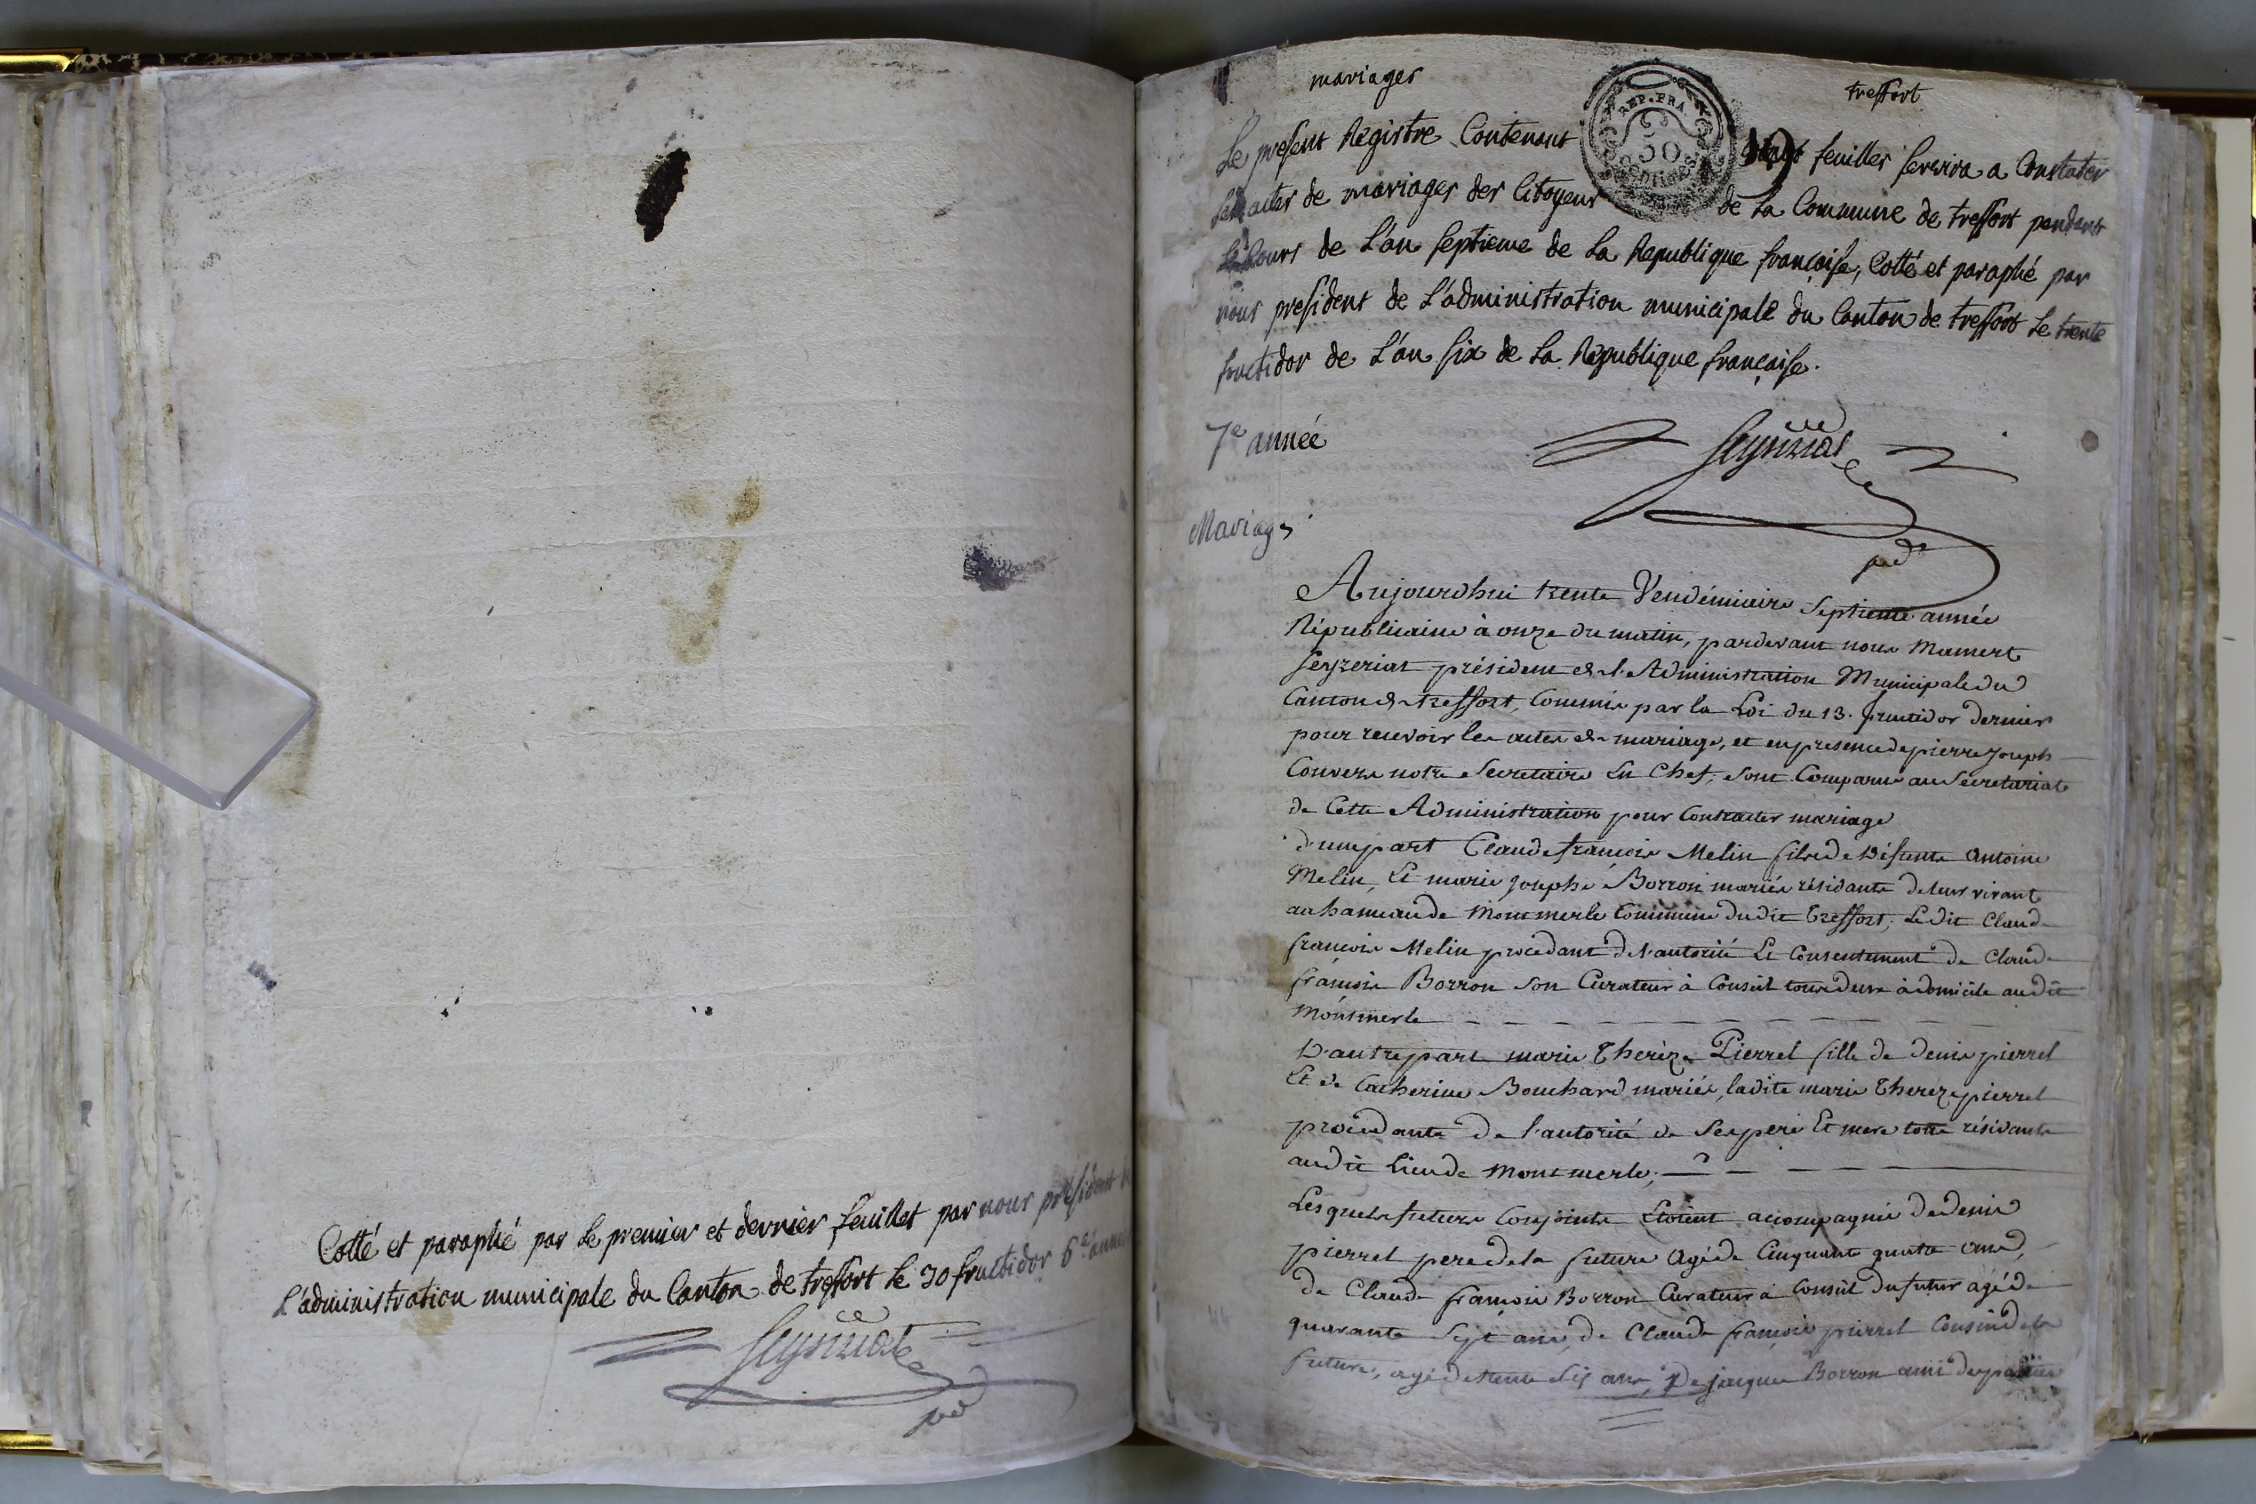 Cotté et paraphé par le premier et dernier feuillet par nous président
L'administration municipale du Canton de treffort le 30 fructidor 6e. année
Seyzeriat
pdt
mariages
treffort
REP. FRA
50
Le present Registre Contenant feuilles servira a Constater
les actes de mariages des Citoyens de la Commune de treffort pendant
le Cours de L'an septieme de La Republique françoise, Cotté et paraphé par
nous president de L'administration municipale du Canton de treffort le trente
fructidor de L'an six de la Republique françaisse.
7e année
Seyzeriat
pdt
Mariages
Aujourdhui trente Vendémiaire Septieme année
Républicaine à onze du matin, pardevant nous Mamert
Seyzeriat président de l'Administration Municipale du
Canton de treffort, Commis par la Loi du 13. fructidor dernier
pour recevoir les actes de mariage, et en presence de pierre joseph
Convers notre Secretaire En Chef, sont Comparus au Secretariat
de Cette Administration pour Contracter mariage
d'une part Claude françois Melin fils de Défunts Antoine
Melin, Et marie josephe Borron mariés résidants de leur vivant
au hameau de Montmerle Commune du dit Treffort, Le dit Claude
françois Melin procedant de l'autorité Et Consentement de Claude
françois Borron son Curateur à Conseil tous deux à domicile au dit
Montmerle
D'autre part marie Thérèze Pierrel fille de denis pierrel
Et de Catherine Bouchard mariés, ladite marie Thereze pierrel
procédante de l'autorité de Ses pere Et mere tous résidants
au dit Lieu de Montmerle;
Lesquels futurs Conjoints Etoient accompagnés de denis
pierrel pere de la future Agé de Cinquante quatre ans,
de Claude françois Borron Curateur à Conseil du futur agé de
quarante Sept ans, de Claude françois pierrel Cousin de la
future, agé de trente Six ans, De jacques Borron ami des parties